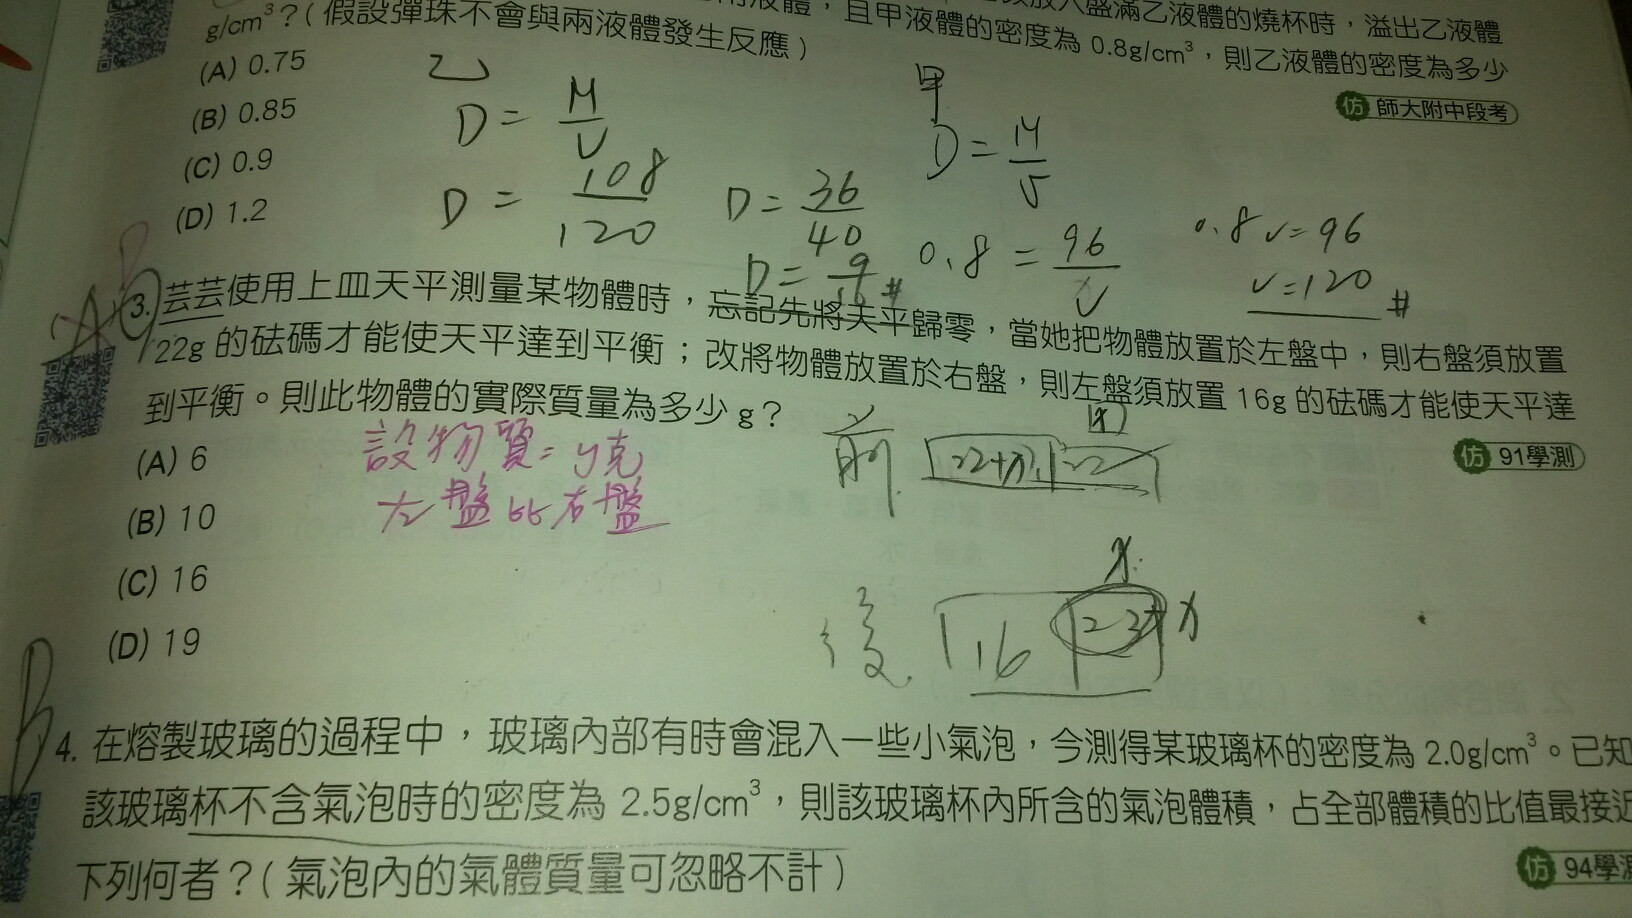 放入盛滿乙液體的燒杯時，溢出乙液體
g/cm³？(假設彈珠不會與兩液體發生反應) 液體，且甲液體的密度為 0.8g/cm³，則乙液體的密度為多少
仿 師大附中段考
(A) 0.75
(B) 0.85
(C) 0.9
(D) 1.2
乙
D = M/V
D = 108/120
D = 36/40
D = 9/10 #
甲
D = M/V
0.8 = 96/V
0.8V = 96
V = 120 #
B
3. 芸芸使用上皿天平測量某物體時，忘記先將天平歸零，當她把物體放置於左盤中，則右盤須放置
22g 的砝碼才能使天平達到平衡；改將物體放置於右盤，則左盤須放置 16g 的砝碼才能使天平達
到平衡。則此物體的實際質量為多少 g？
仿 91學測
(A) 6
(B) 10
(C) 16
(D) 19
設物質=y克
左盤比右盤
前
22+x
22
後
16
x
4. 在熔製玻璃的過程中，玻璃內部有時會混入一些小氣泡，今測得某玻璃杯的密度為 2.0g/cm³。已知
該玻璃杯不含氣泡時的密度為 2.5g/cm³，則該玻璃杯內所含的氣泡體積，占全部體積的比值最接近
下列何者？(氣泡內的氣體質量可忽略不計)
仿 94學測